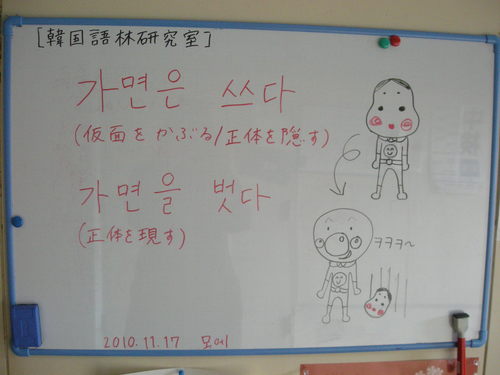 [韓国語林研究室]
가면은 쓰다
(仮面をかぶる/正体を隠す)
가면을 벗다
(正体を現す)
ㅋㅋㅋ~
2010.11.17 모에